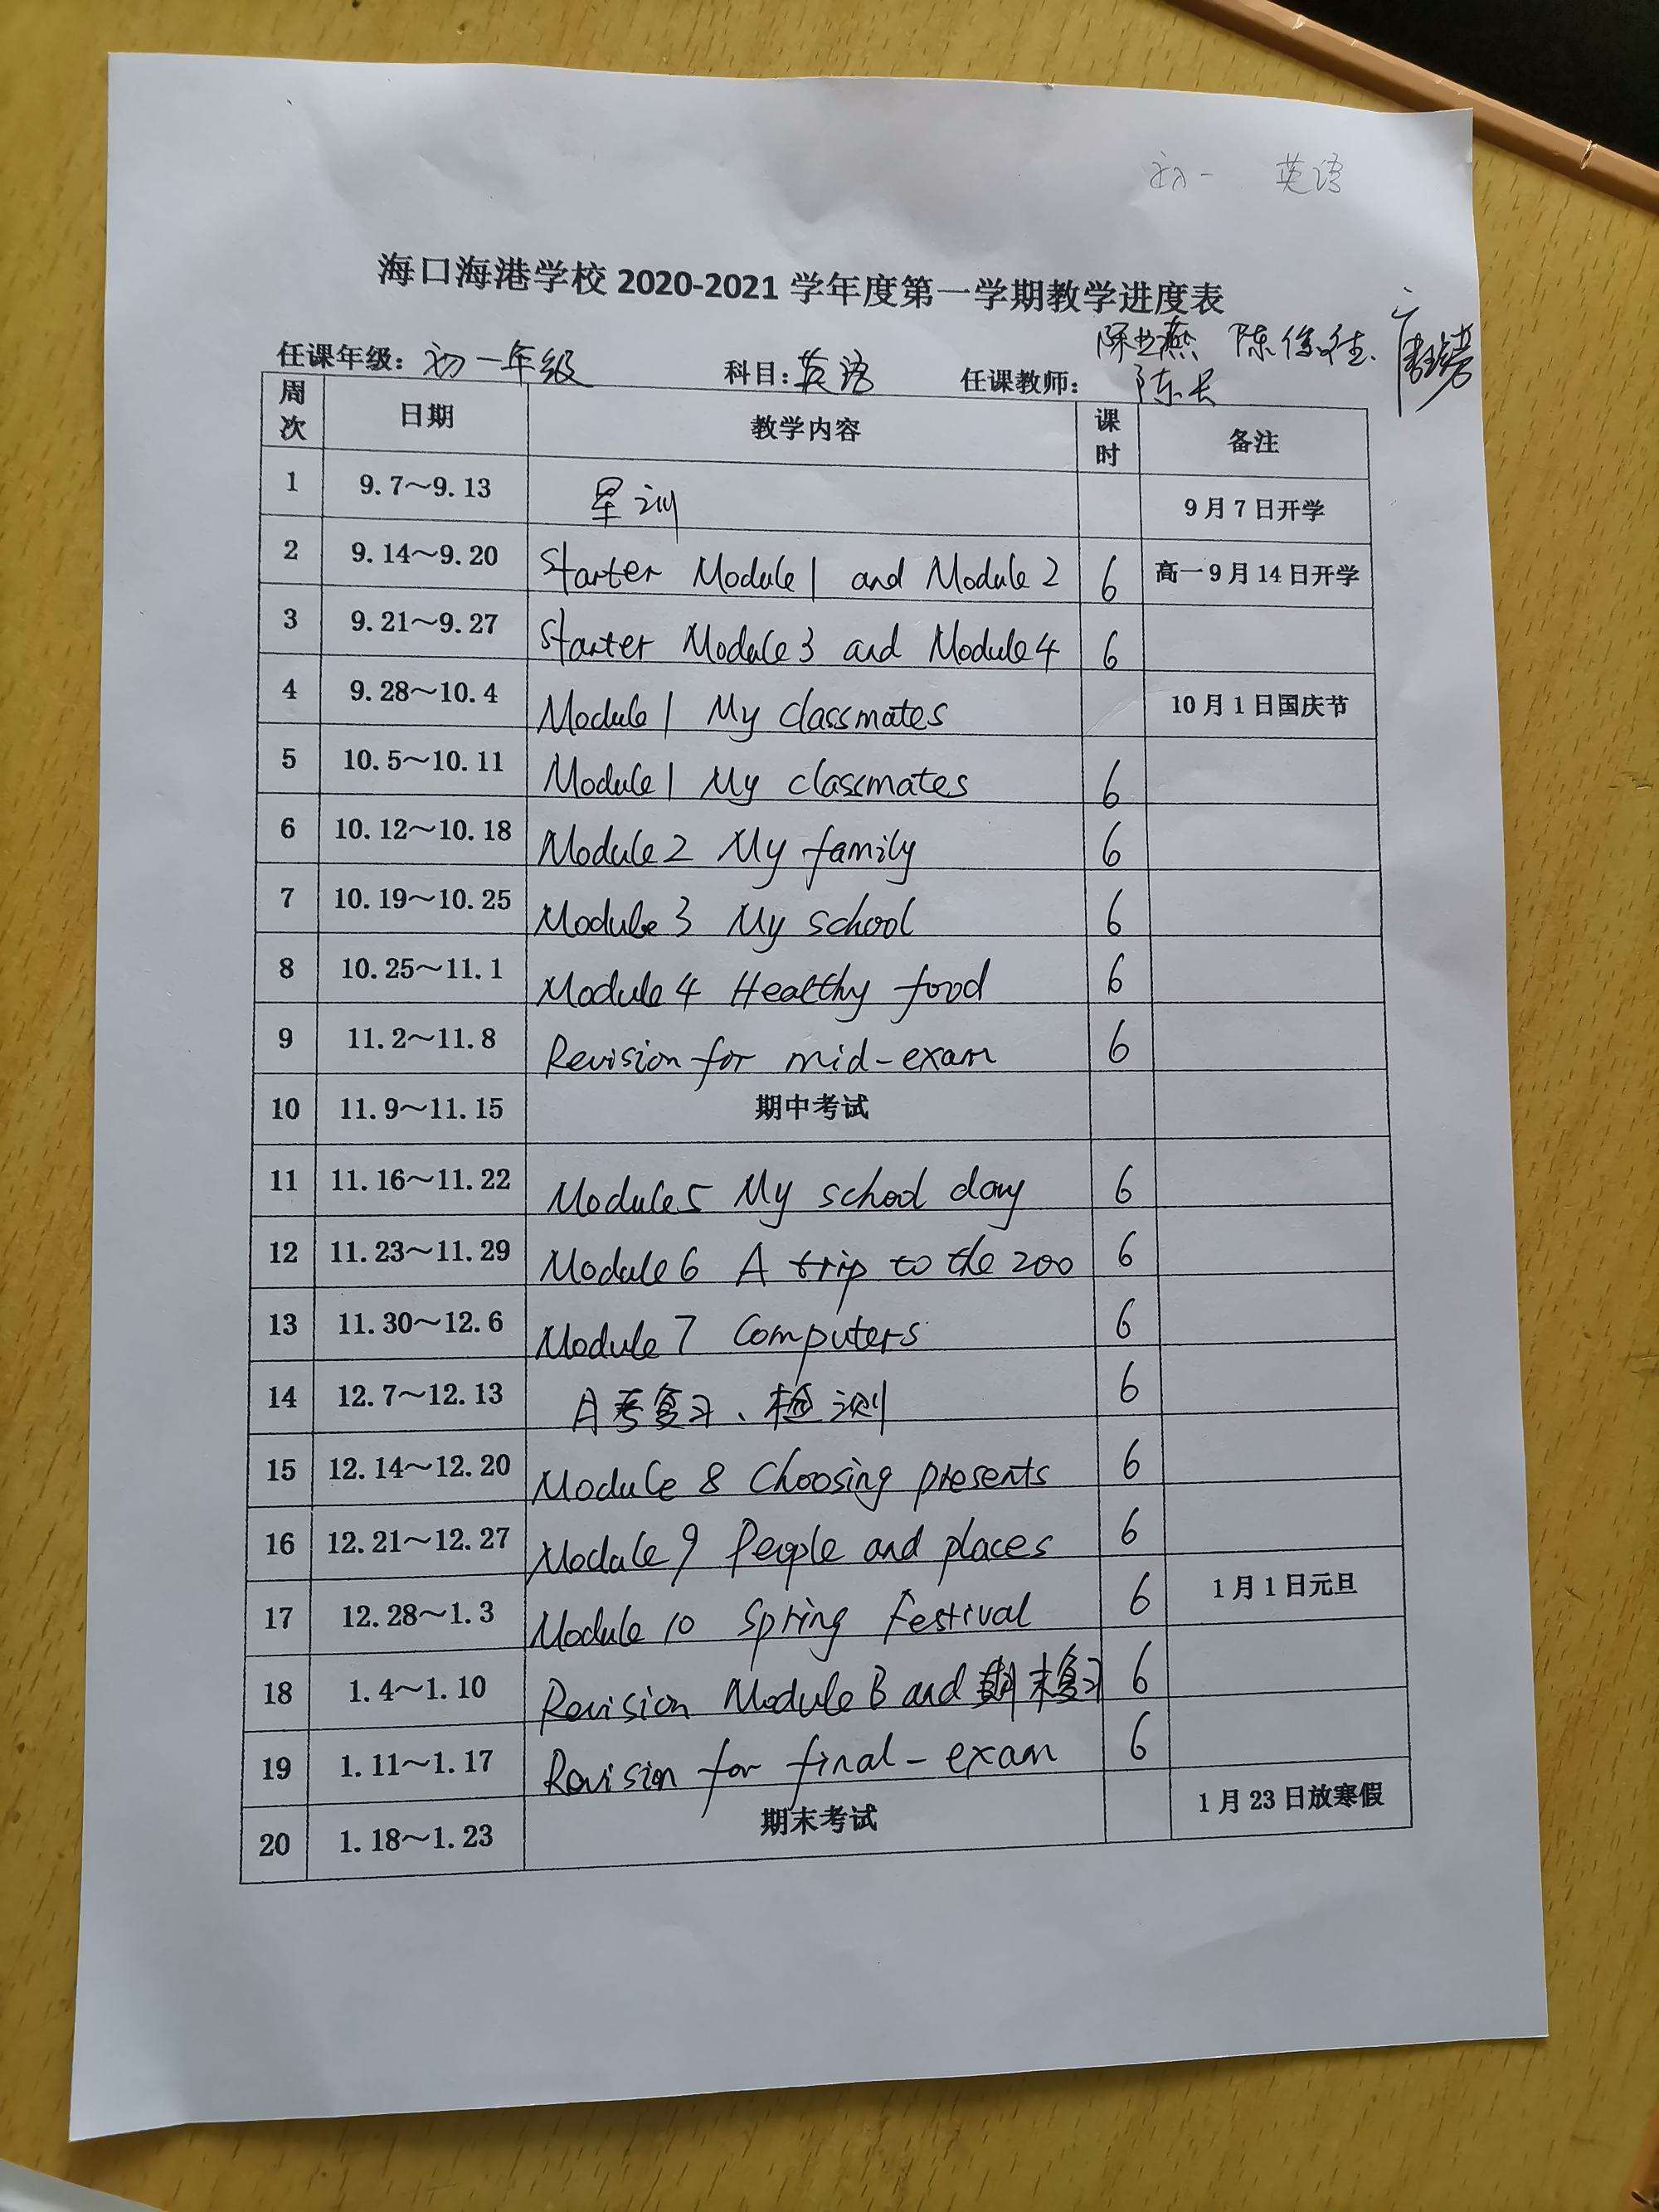 初一 英语
海口海港学校 2020-2021 学年度第一学期教学进度表
任课年级：初一年级 科目：英语 任课教师：
周次 日期 教学内容 课时 备注
1 9.7～9.13 军训 9月7日开学
2 9.14～9.20 Starter Module 1 and Module 2 6 高一9月14日开学
3 9.21～9.27 Starter Module 3 and Module 4 6
4 9.28～10.4 Module 1 My classmates 10月1日国庆节
5 10.5～10.11 Module 1 My classmates 6
6 10.12～10.18 Module 2 My family 6
7 10.19～10.25 Module 3 My school 6
8 10.25～11.1 Module 4 Healthy food 6
9 11.2～11.8 Revision for mid-exam 6
10 11.9～11.15 期中考试
11 11.16～11.22 Module 5 My school day 6
12 11.23～11.29 Module 6 A trip to the zoo 6
13 11.30～12.6 Module 7 Computers 6
14 12.7～12.13 月考复习、检测 6
15 12.14～12.20 Module 8 Choosing presents 6
16 12.21～12.27 Module 9 People and places 6
17 12.28～1.3 Module 10 Spring Festival 6 1月1日元旦
18 1.4～1.10 Revision Module B and 期末复习 6
19 1.11～1.17 Revision for final-exam 6
20 1.18～1.23 期末考试 1月23日放寒假